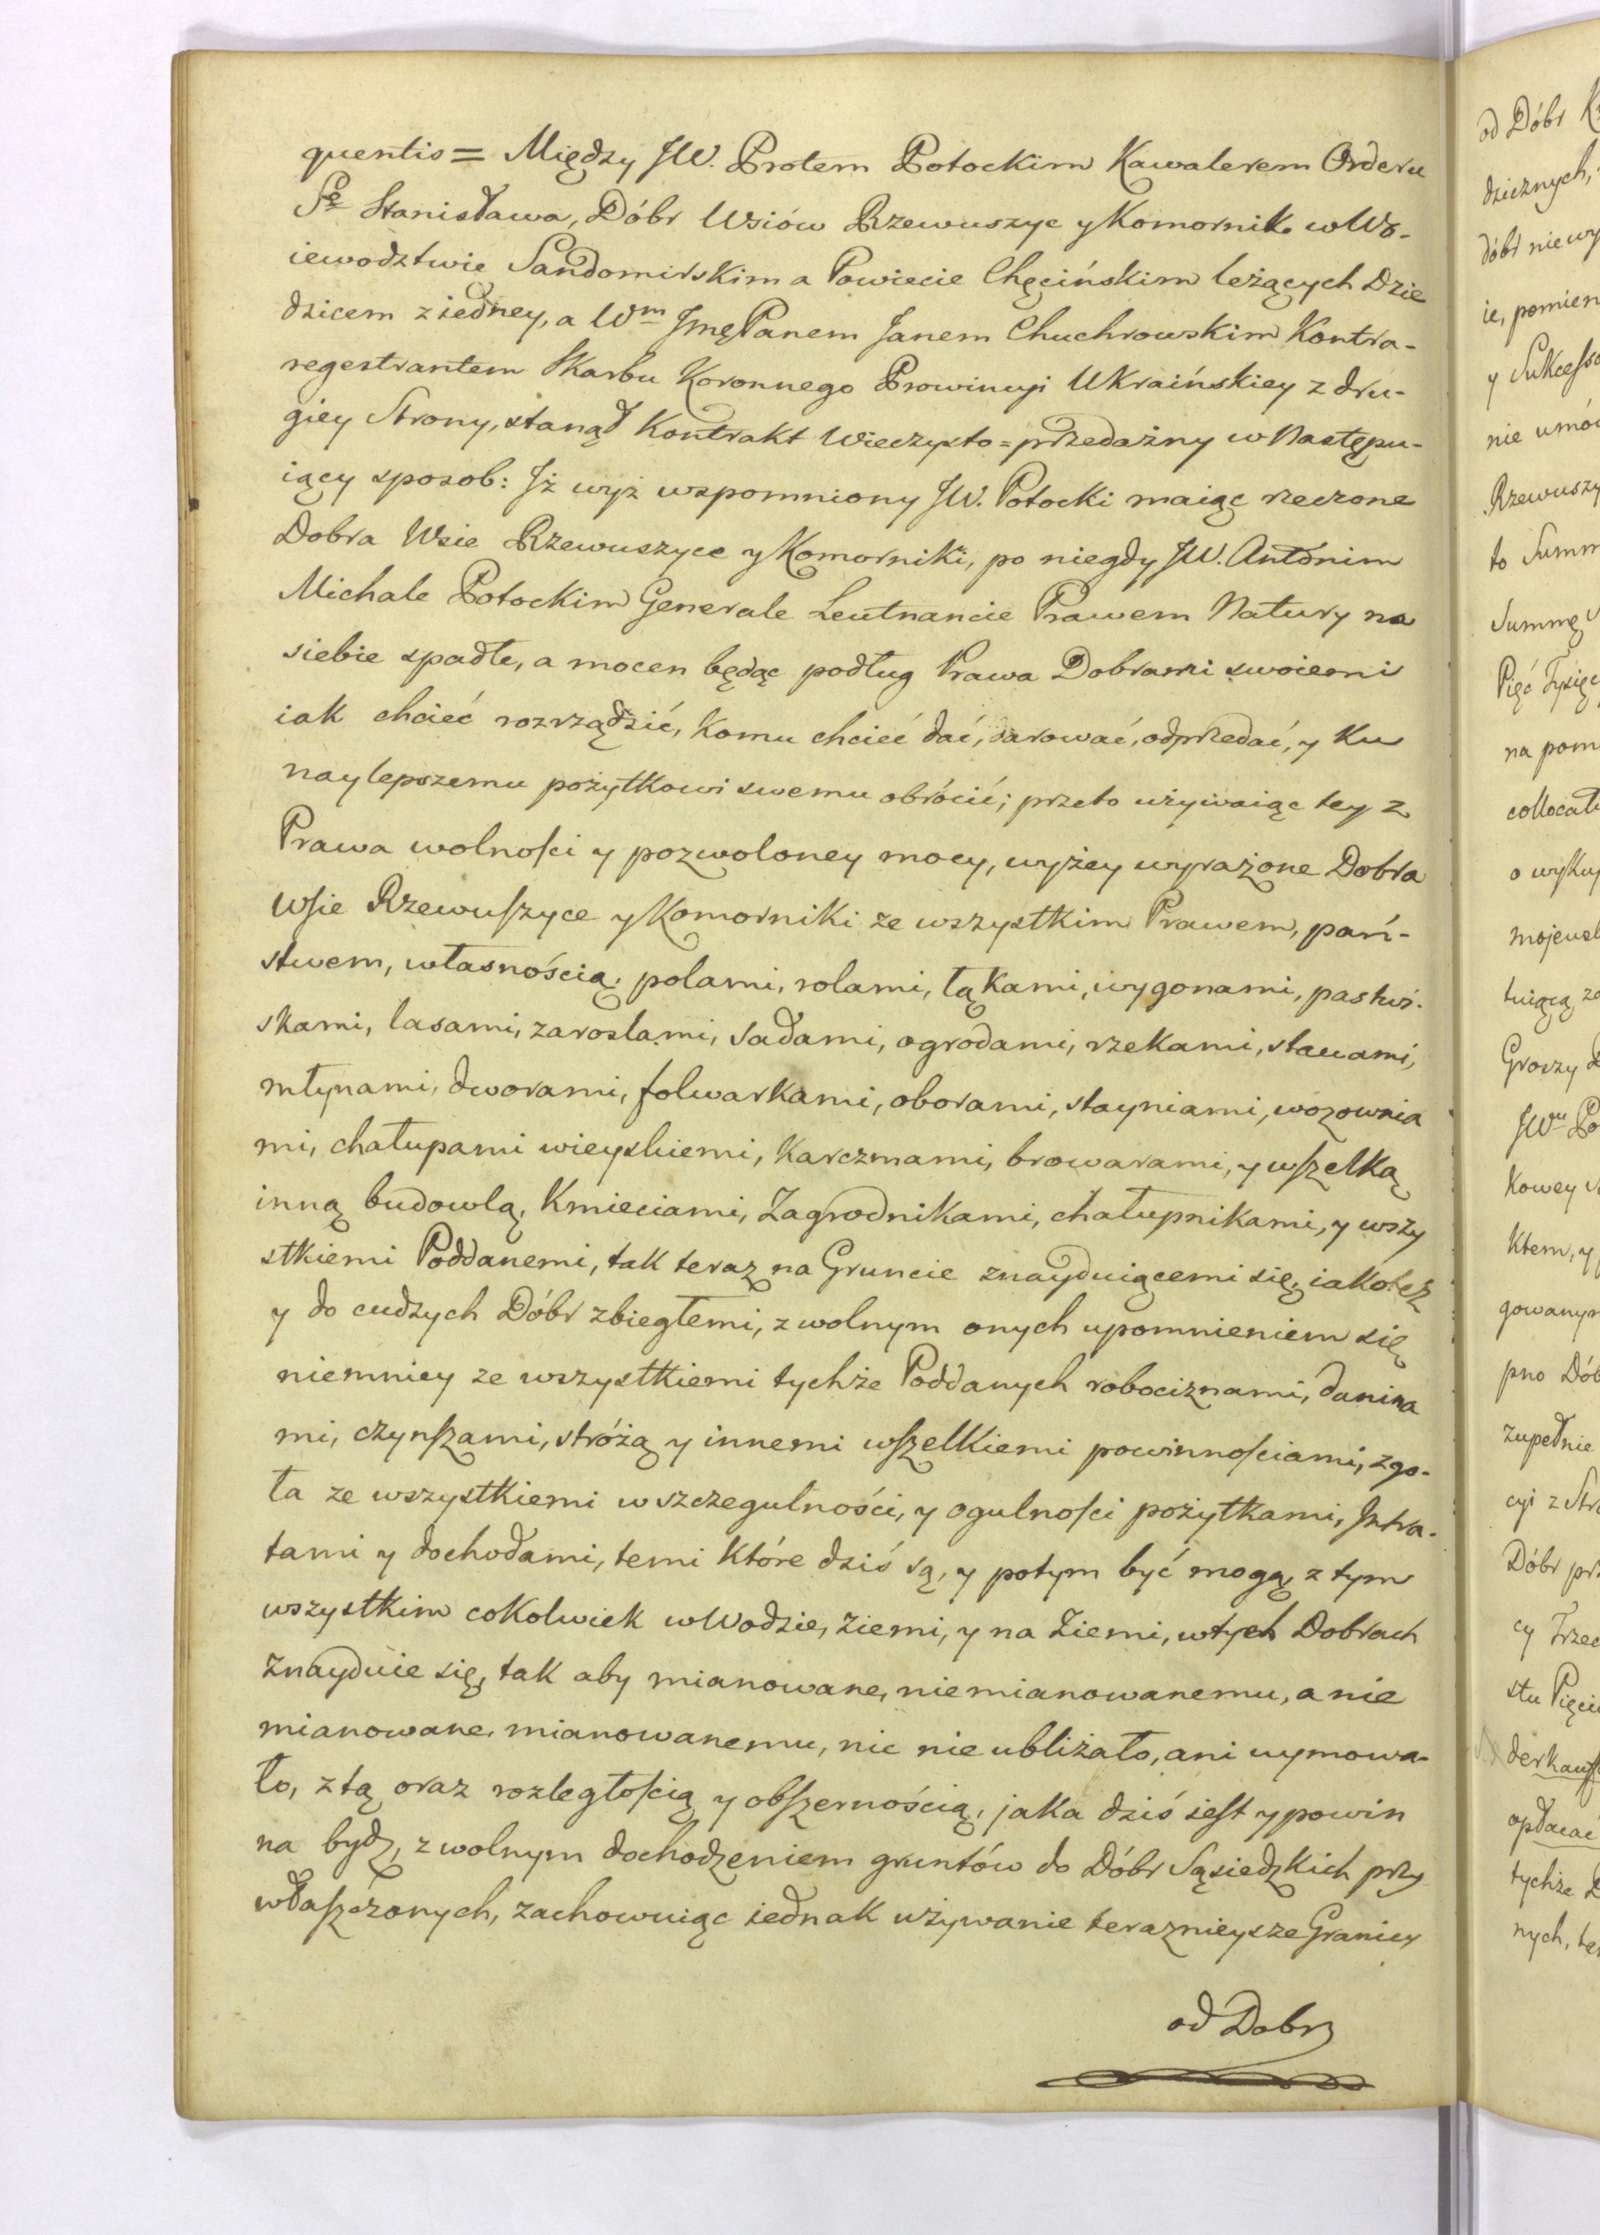 quentis = Między JW. Protem Potockim Kawalerem Orderu
Sgo Stanisława, Dóbr Wsiów Rzewuszyc y Komornik w Wo-
iewodztwie Sandomirskim a Powiecie Chęcińskim leżących Dzie
dzicem z iedney, a Wm Jmę Panem Janem Chuchrowskim Kontra-
regestrantem Skarbu Koronnego Prowincyi Ukraińskiey z dru-
giey Strony, stanął Kontrakt Wieczysto=przedażny w Następu-
iący sposob: Jż wyż wspomniony JW. Potocki maiąc rzeczone
Dobra Wsie Rzewuszyce y Komorniki, po niegdy JW. Antonim
Michale Potockim Generale Leutnancie Prawem Natury na
siebie spadłe, a mocen będąc podług Prawa Dobrami swoiemi
iak chcieć rozrządzić, Komu chcieć dać, darować, odprzedać, y Ku
naylepszemu pożytkowi swemu obrócić; przeto używaiąc tey z
Prawa wolności y pozwoloney mocy, wyżey wyrażone Dobra
Wsie Rzewuszyce y Komorniki ze wszystkim Prawem, pań-
stwem, własnością, polami, rolami, łąkami, wygonami, pastwi-
skami, lasami, zaroslami, Sadami, ogrodami, rzekami, stawami,
młynami, dworami, folwarkami, oborami, stayniami, wozownia
mi, chałupami wieyskiemi, Karczmami, browarami, y wszelką
inną budowlą, Kmieciami, Zagrodnikami, chałupnikami, y wszy
stkiemi Poddanemi, tak teraz na Gruncie znayduiącemi się, iakoteż
y do cudzych Dóbr zbiegłemi, z wolnym onych upomnieniem się
niemniey ze wszystkiemi tychże Poddanych robociznami, danina
mi, czynszami, stróżą y innemi wszelkiemi powinnościami, zgo-
ła ze wszystkiemi w szczegulności, y ogulności pożytkami, Jntra-
tami y dochodami, temi Które dziś są, y potym być mogą, z tym
wszystkim coKolwiek w Wodzie, ziemi, y na Ziemi, w tych Dobrach
Znayduie się, tak aby mianowane, niemianowanemu, a nie
mianowane, mianowanemu, nic nie ubliżało, ani uymowa-
ło, z tą oraz rozległością y obszernością, jaka dziś iest y powin
na bydz, z wolnym dochodzeniem gruntów do Dóbr Sąsiedzkich przy
właszczonych, zachowuiąc iednak używanie teraznieysze Granicy
od Dobr
od Dóbr
dzicznych,
dóbr niewy
ie, pomien
y Sukcesso
nie umów
Rzewuszy
to Summ
Summę
Pięć Tysięc
na pom
collocat
o wyku
tuiącą za
Groszy
JWu Po
Kowey
Ktem, y
gowanym
pno Dób
zupełnie
cyi z Stro
Dóbr prz
cy Trzec
stu Pięci
opłacać
tychże D
nych, te